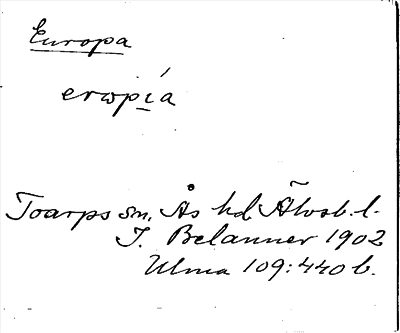 Europa
erωpía
Toarps sn, Ås hd Älvsb. l.
J. Belanner 1902
Ulma 109:440 b.